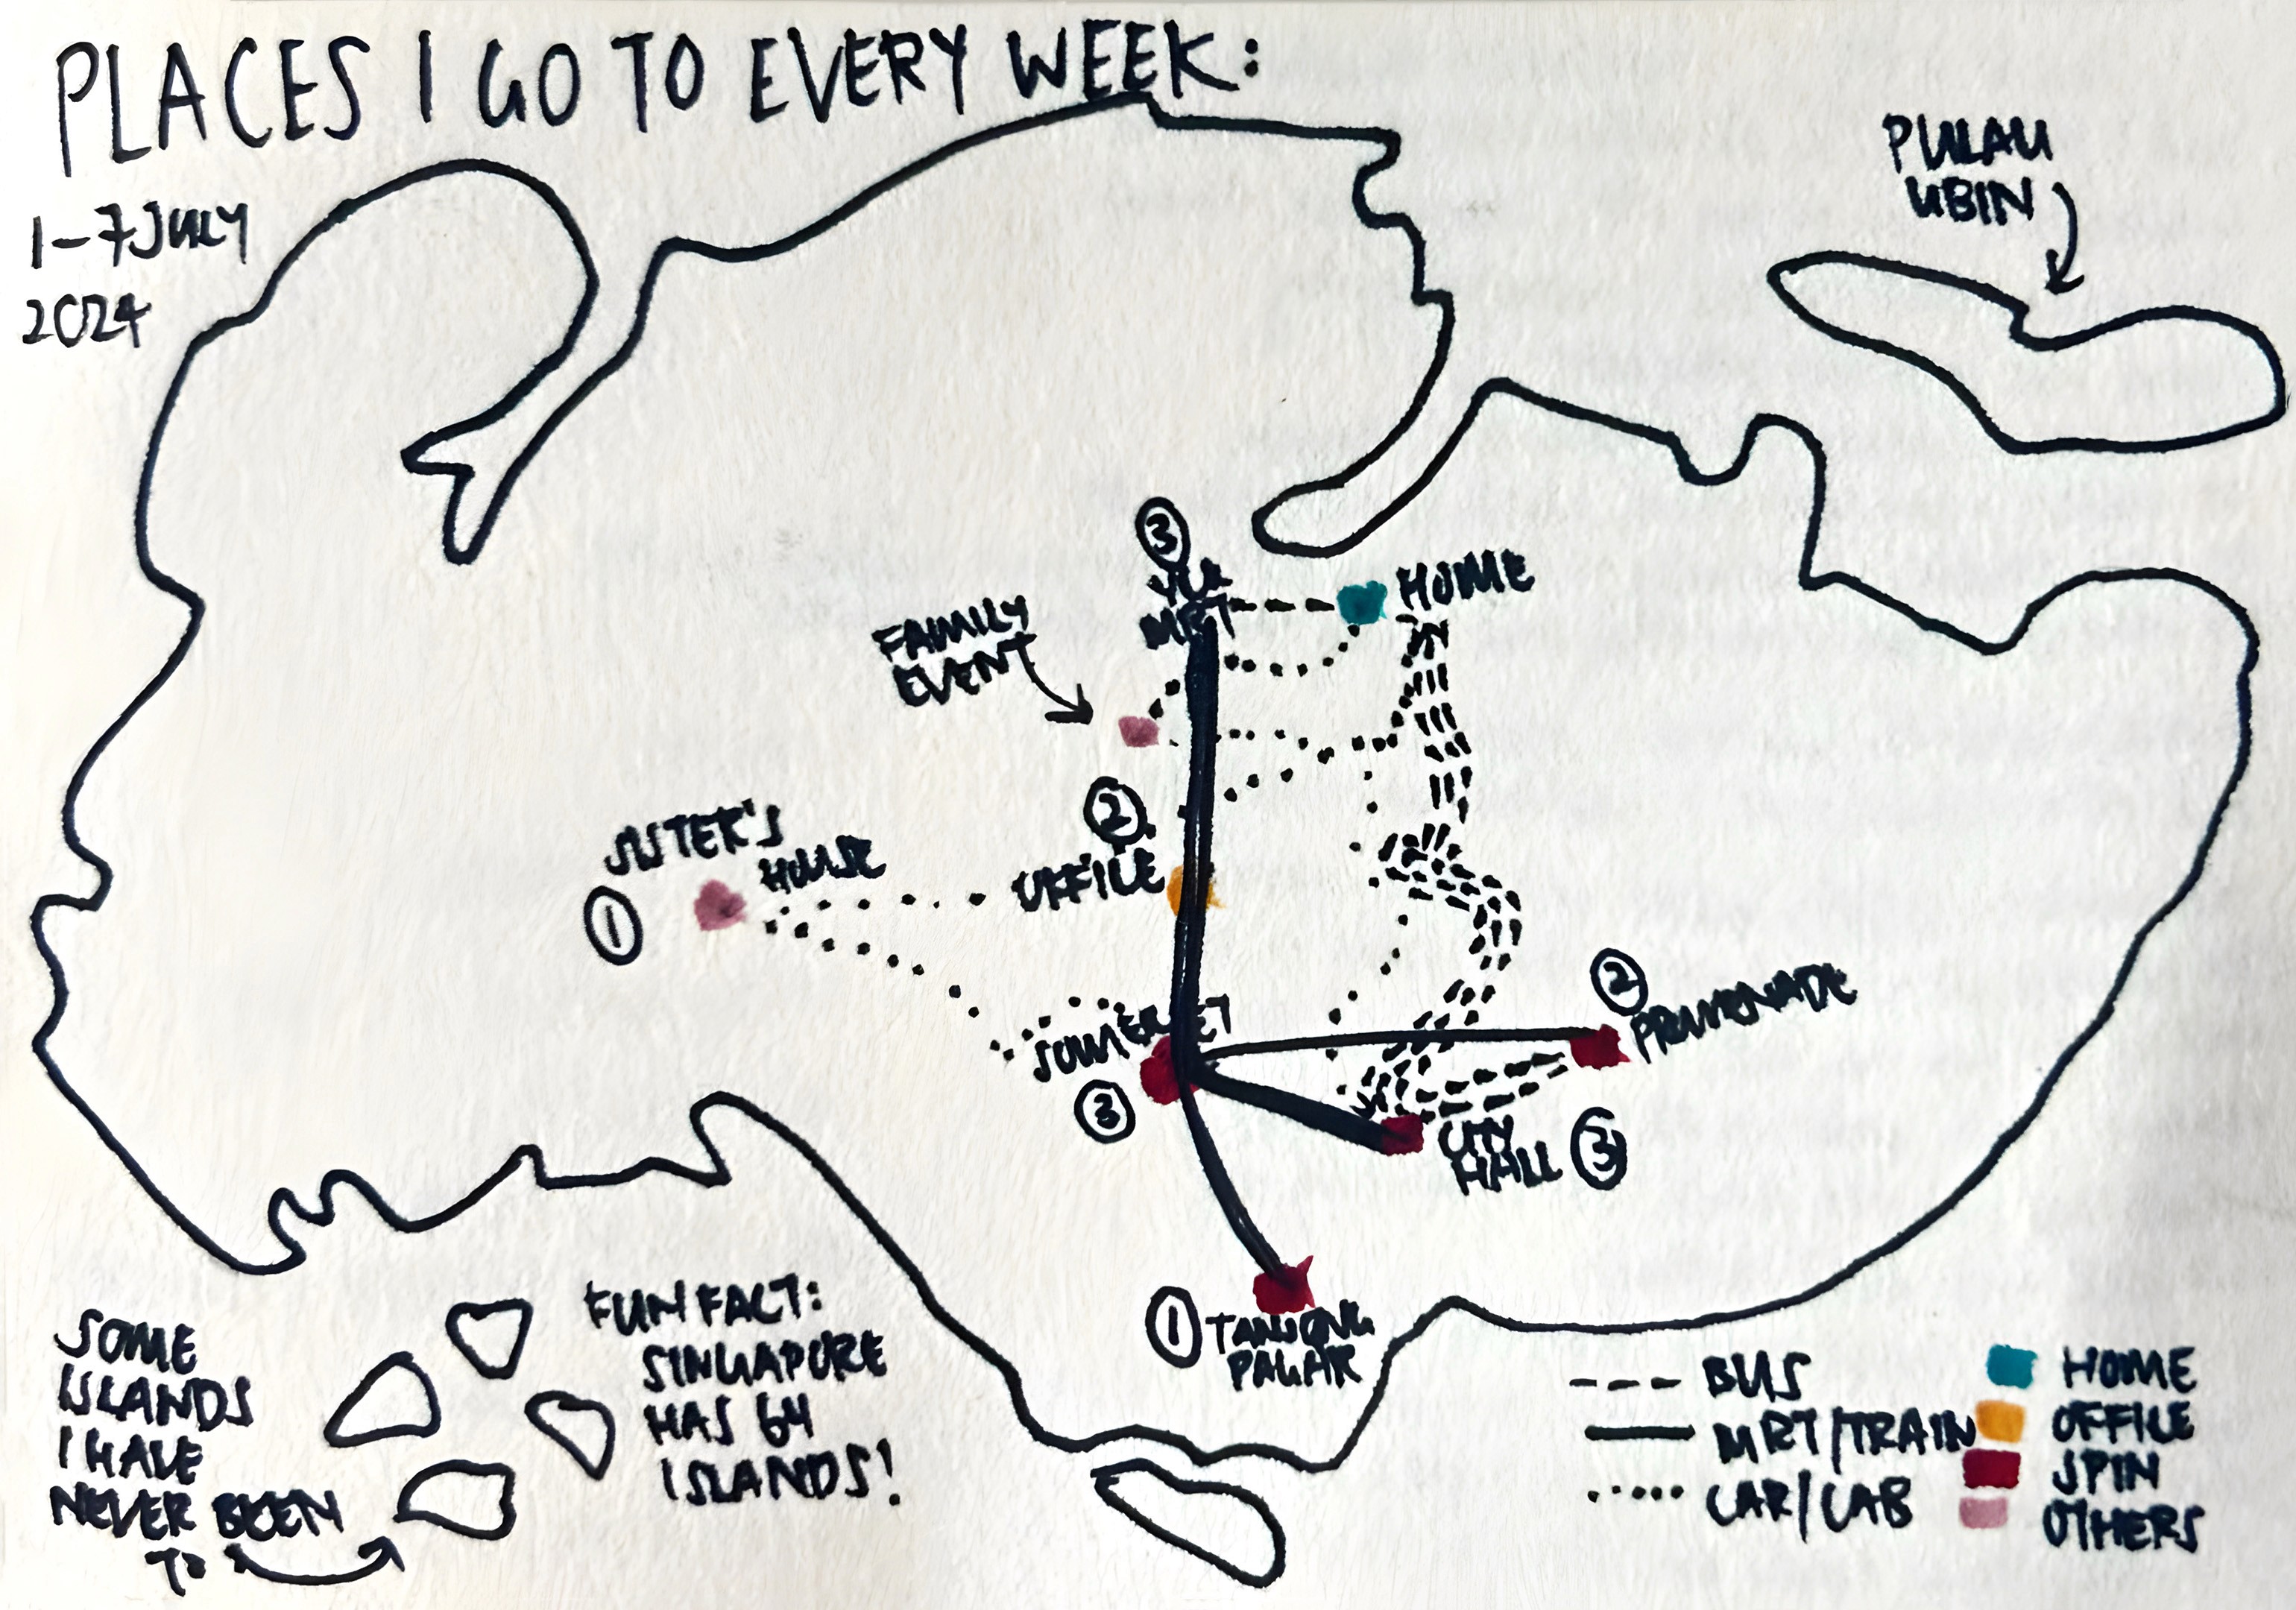 PLACES I GO TO EVERY WEEK:
1-7 JULY
2024
PULAU
UBIN
3
YCK
MRT
HOME
FAMILY
EVENT
2
OFFICE
SISTER'S
HOUSE
1
2
PROMENADE
SOMERSET
3
CITY
HALL
3
1
TANJONG
PAGAR
SOME
ISLANDS
I HAVE
NEVER BEEN
TO
FUN FACT:
SINGAPORE
HAS 64
ISLANDS!
BUS
MRT/TRAIN
CAR/CAB
HOME
OFFICE
SPIN
OTHERS